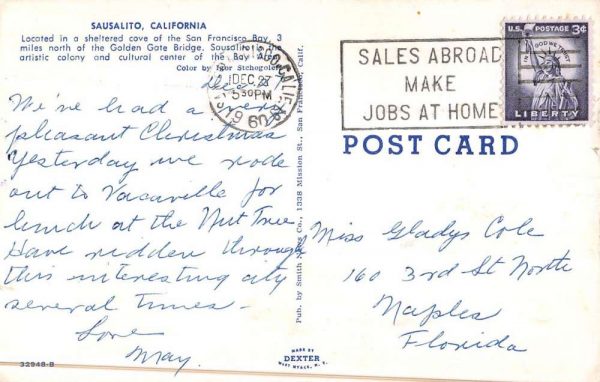 SAUSALITO, CALIFORNIA
Located in a sheltered cove of the San Francisco Bay, 3
miles north of the Golden Gate Bridge. Sausalito is the
artistic colony and cultural center of the Bay Area.
Color by Igor Stchogoleff
DEC 27
5 30 PM
1960
SALES ABROAD
MAKE
JOBS AT HOME
U.S. POSTAGE 3¢
IN GOD WE TRUST
LIBERTY
POST CARD
We've had a very
pleasant Christmas
Yesterday we rode
out to Vacaville for
lunch at the Nut Tree.
Have ridden through
this interesting city
several times -
Love
May.
Pub. by Smith News Co., 1338 Mission St., San Francisco, Calif.
Miss Gladys Cole
160 3rd St North
Naples
Florida
MADE BY
DEXTER
WEST NYACK, N. Y.
32948-B